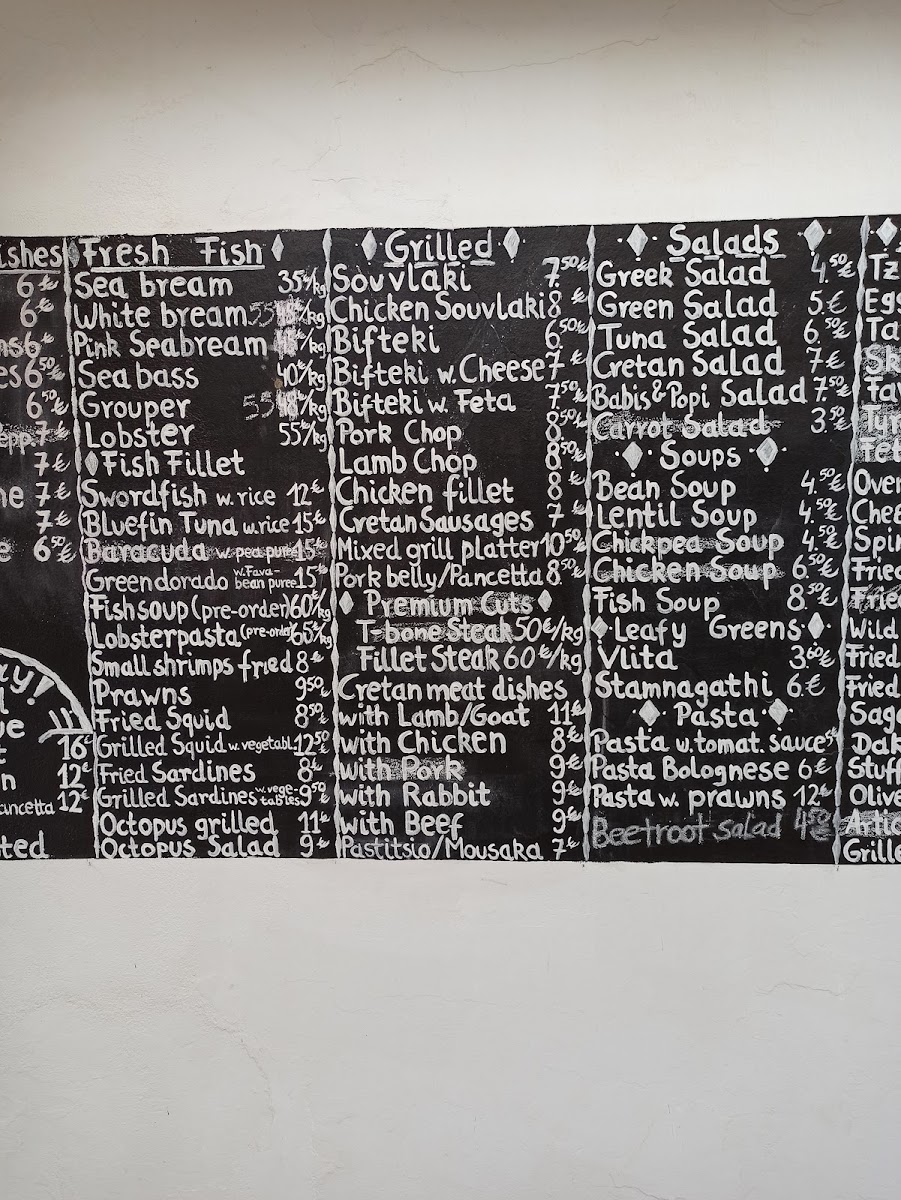 ishes
6€
6€
ns 6€
es 6.50€
6.50€
epp. 7€
7€
ne 7€
7€
e 6.50€
ay!
l
ue
t 16€
n 12€
ancetta 12€
ted
Fresh Fish
Sea bream 35€/kg
White bream 55€/kg
Pink Seabream €/kg
Sea bass 40€/kg
Grouper 55€/kg
Lobster 55€/kg
Fish Fillet
Swordfish w. rice 12€
Bluefin Tuna w. rice 15€
Baracuda w pea puree 15€
Greendorado w. Fava-bean puree 15€
Fishsoup (pre-order) 60€/kg
Lobsterpasta (pre-order) 65€/kg
Small shrimps fried 8€
Prawns 9.50€
Fried Squid 8.50€
Grilled Squid w. vegetabl. 12.50€
Fried Sardines 8€
Grilled Sardines w. vege-tables 9.50€
Octopus grilled 11€
Octopus Salad 9€
Grilled
Souvlaki 7.50€
Chicken Souvlaki 8€
Bifteki 6.50€
Bifteki w. Cheese 7€
Bifteki w. Feta 7.50€
Pork Chop 8.50€
Lamb Chop 8.50€
Chicken fillet 8€
Cretan Sausages 7€
Mixed grill platter 10.50€
Pork belly/Pancetta 8.50€
Premium Cuts
T-bone Steak 50€/kg
Fillet Steak 60€/kg
Cretan meat dishes
with Lamb/Goat 11€
with Chicken 8€
with Pork 9€
with Rabbit 9€
with Beef 9€
Pastitsio/Mousaka 7€
Salads
Greek Salad 4.50€
Green Salad 5€
Tuna Salad 6.50€
Cretan Salad 7€
Babis & Popi Salad 7.50€
Carrot Salad 3.50€
Soups
Bean Soup 4.50€
Lentil Soup 4.50€
Chickpea Soup 4.50€
Chicken Soup 6.50€
Fish Soup 8.50€
Leafy Greens
Vlita 3.60€
Stamnagathi 6€
Pasta
Pasta w. tomat. sauce 5€
Pasta Bolognese 6€
Pasta w. prawns 12€
Beetroot salad 4.50€
Tz
Egg
Ta
Sk
Fav
Tyr
Tet
Over
Chee
Spin
Fried
Fried
Wild
Fried
Fried
Saga
Dak
Stuff
Olive
Artic
Grille